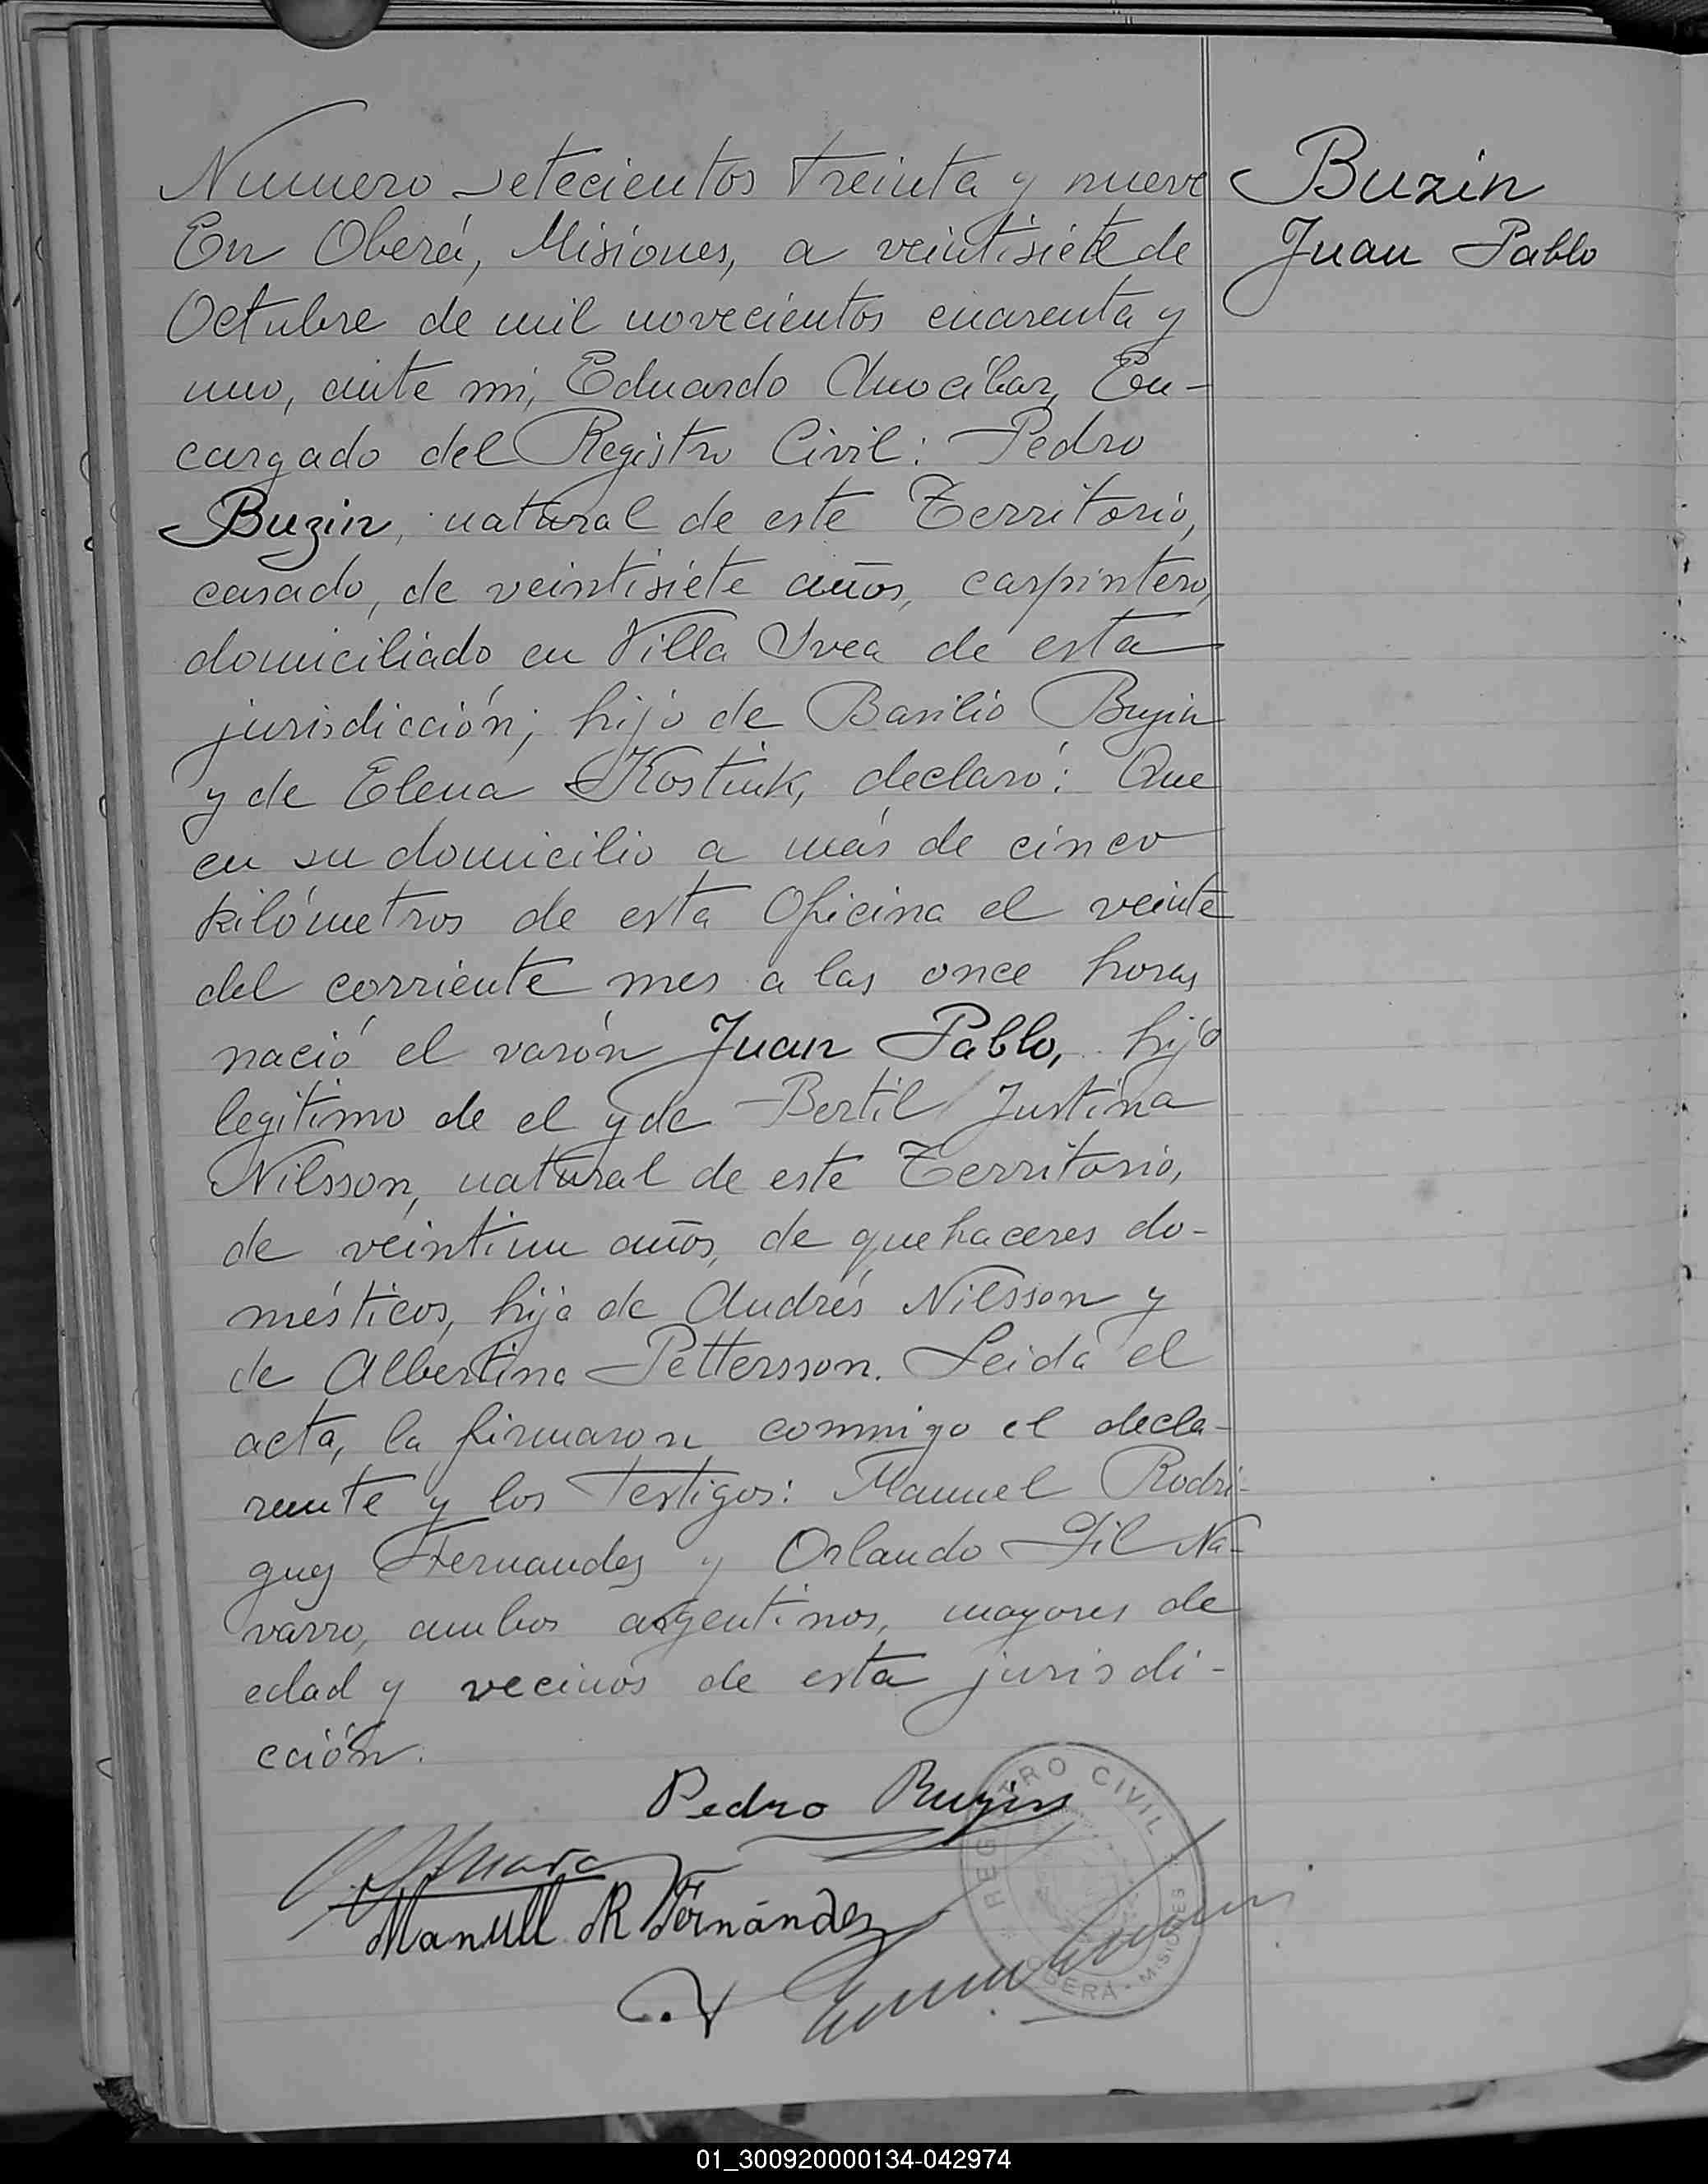 Numero setecientos treinta y nueve
En Oberá, Misiones, a veintisiete de
Octubre de mil novecientos cuarenta y
uno, ante mi, Eduardo Amocibar, En-
cargado del Registro Civil: Pedro
Buzin, natural de este Territorio,
casado, de veintisiete años, carpintero,
domiciliado en Villa Svea de esta
jurisdicción; hijo de Basilio Buzin
y de Elena Kostiuk, declaró: Que
en su domicilio a más de cinco
kilómetros de esta Oficina el veinte
del corriente mes a las once horas
nació el varón Juan Pablo, hijo
legitimo de el y de Bertil Justina
Nilsson, natural de este Territorio,
de veintiun años, de quehaceres do-
mésticos, hija de Andrés Nilsson y
de Albertina Pettersson. Leida el
acta, la firmaron conmigo el decla-
rante y los testigos: Manuel Rodri-
guez Fernandez y Orlando Gil Na-
varro, ambos argentinos, mayores de
edad y vecinos de esta jurisdi-
cción.
Buzin
Juan Pablo
Pedro Buzin
Manuel R Fernández
REGISTRO CIVIL
OBERÁ - MISIONES
01_300920000134-042974